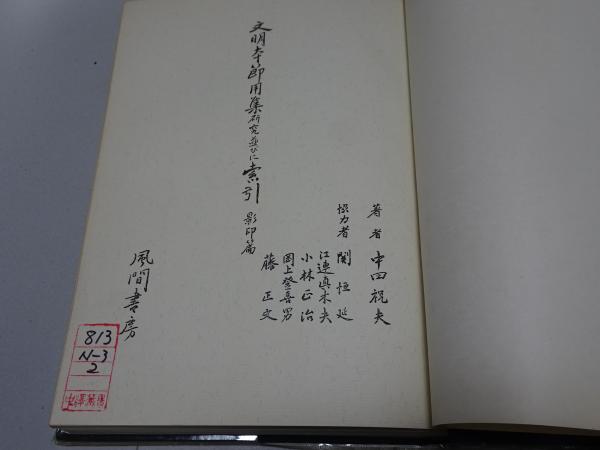 著者 中田祝夫
協力者 関恒延
江連真木夫
小林正治
岡上登喜男
藤正文
文明本節用集研究並びに索引 影印篇
風間書房
813
N-3
2